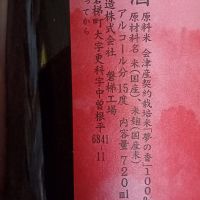 酒
原料米 会津産契約栽培米「夢の香」100%
原材料名 米(国産)、米麹(国産米)
アルコール分 15度 内容量 720ml
造株式会社 磐梯工場
梯町大字更科字中曽根平6841-11
ってから